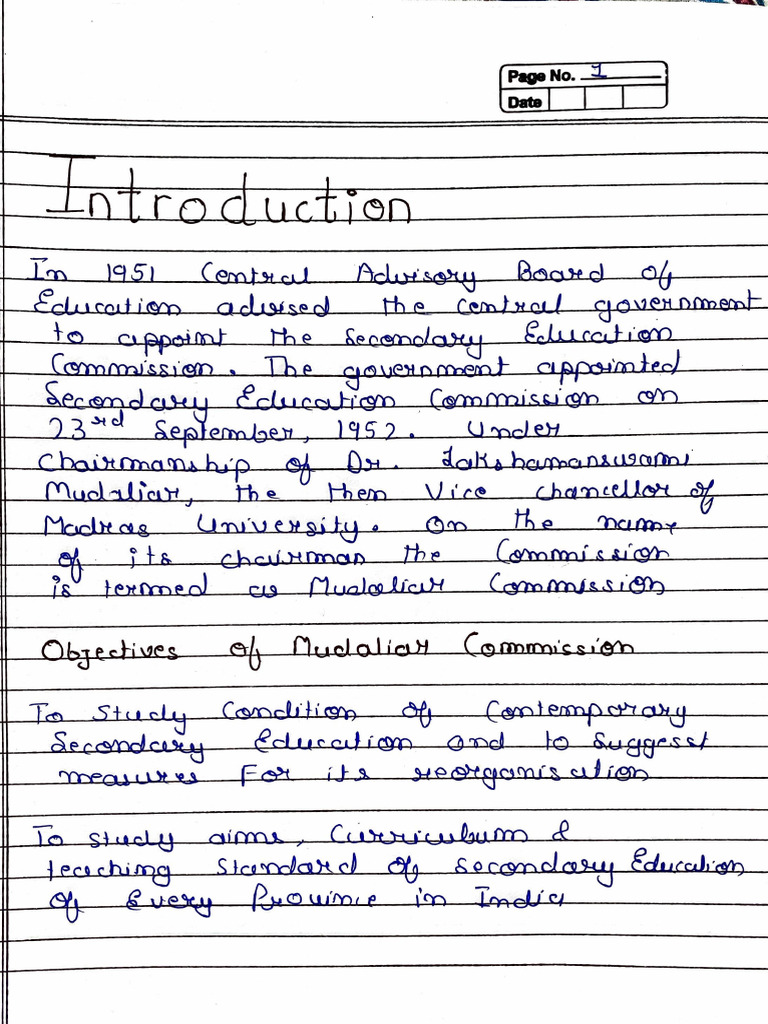 Page No. 1
Date
Introduction
In 1951 Central Advisory Board of
Education advised the central government
to appoint the Secondary Education
Commission. The government appointed
Secondary Education Commission on
23rd September, 1952. Under
Chairmanship of Dr. Lakshamanswami
Mudaliar, the then Vice chancellor of
Madras University. On the name
of its chairman the Commission
is termed as Mudaliar Commission
Objectives of Mudaliar Commission
To study Condition of Contemporary
Secondary Education and to suggest
measures For its reorganisation
To study aims, Curriculum &
teaching Standard of secondary Education
of Every Province in India